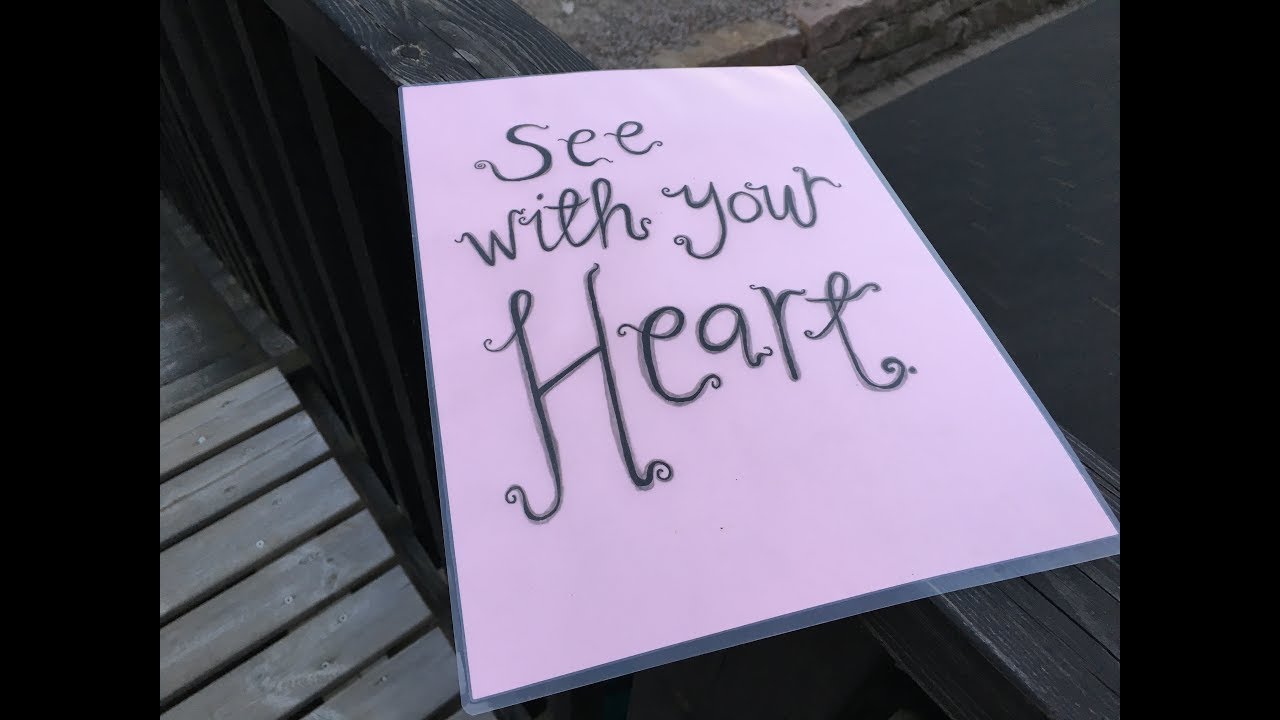 See
with your
Heart.